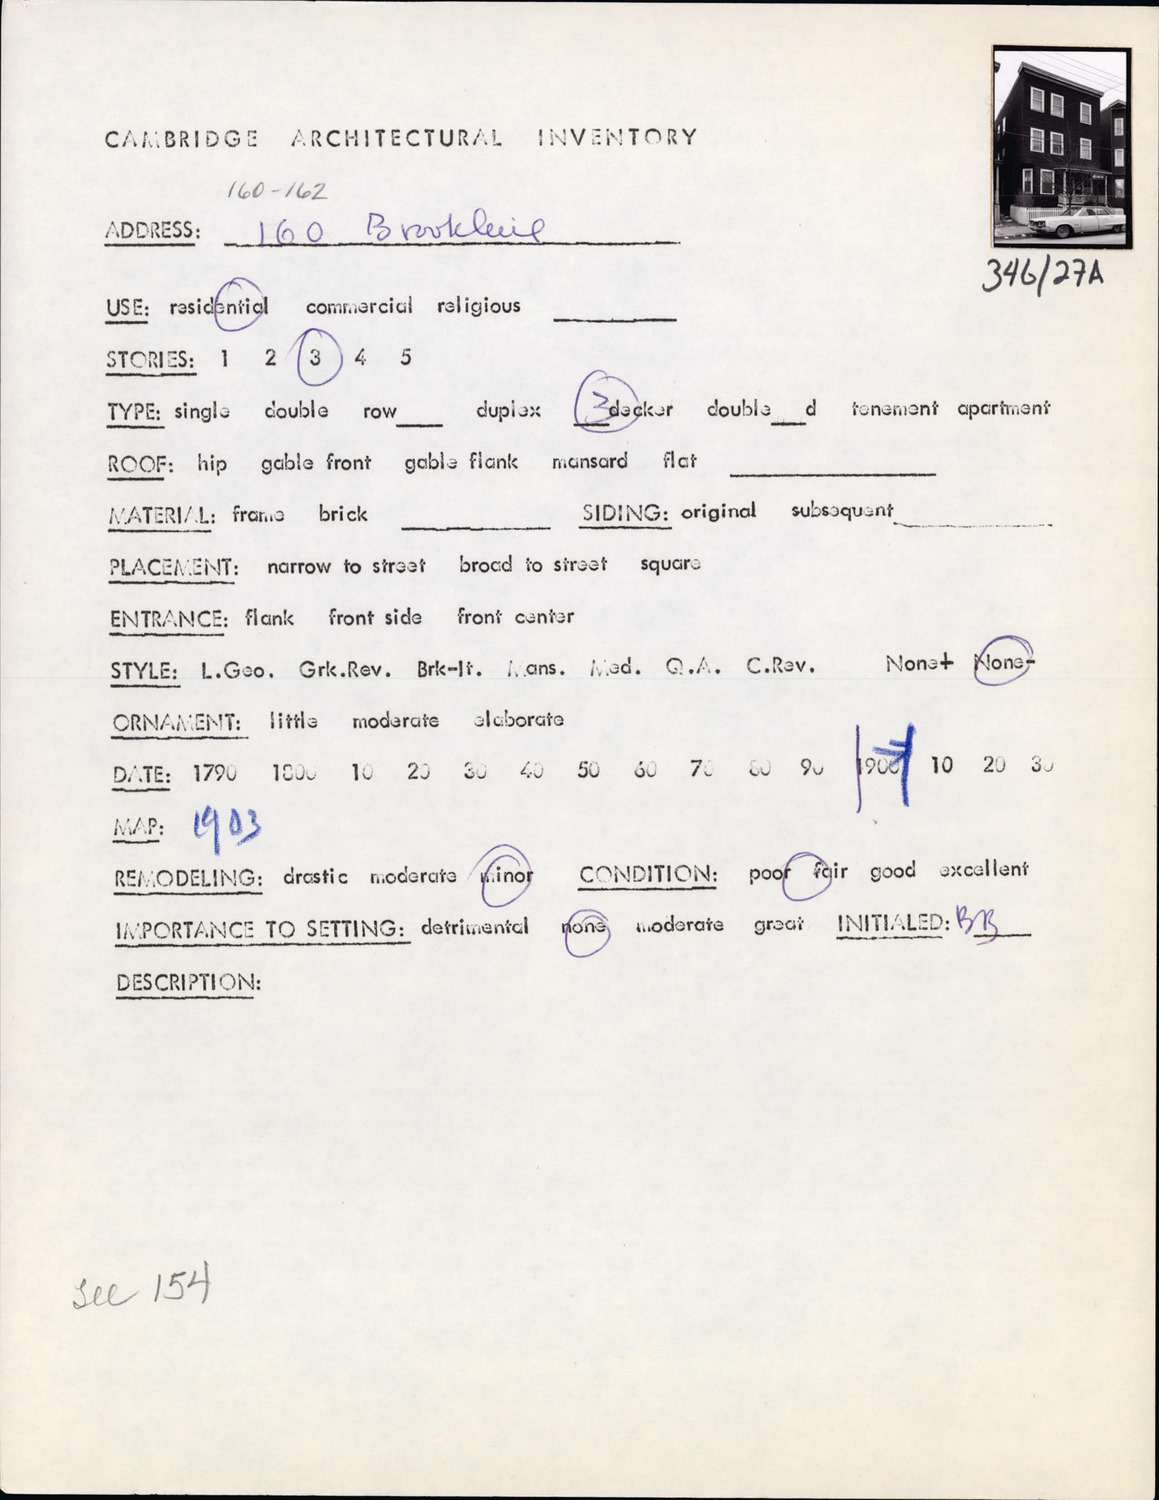 CAMBRIDGE ARCHITECTURAL INVENTORY
160-162
ADDRESS: 160 Brookline
346/27A
USE: residential commercial religious
STORIES: 1 2 3 4 5
TYPE: single double row duplex 3 decker double d tenement apartment
ROOF: hip gable front gable flank mansard flat
MATERIAL: frame brick SIDING: original subsequent
PLACEMENT: narrow to street broad to street square
ENTRANCE: flank front side front center
STYLE: L.Geo. Grk.Rev. Brk-It. Mans. Med. Q.A. C.Rev. None+ None-
ORNAMENT: little moderate elaborate
DATE: 1790 1800 10 20 30 40 50 60 70 80 90 1900 10 20 30
MAP: 1903
REMODELING: drastic moderate minor CONDITION: poor fair good excellent
IMPORTANCE TO SETTING: detrimental none moderate great INITIALED: BB
DESCRIPTION:
see 154